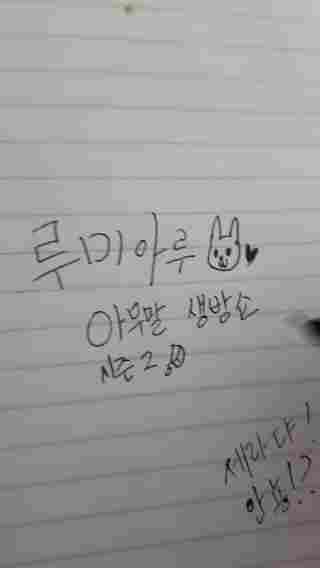 루미아루
아무말 생방소
시즌2
세라다!
안뇽!?